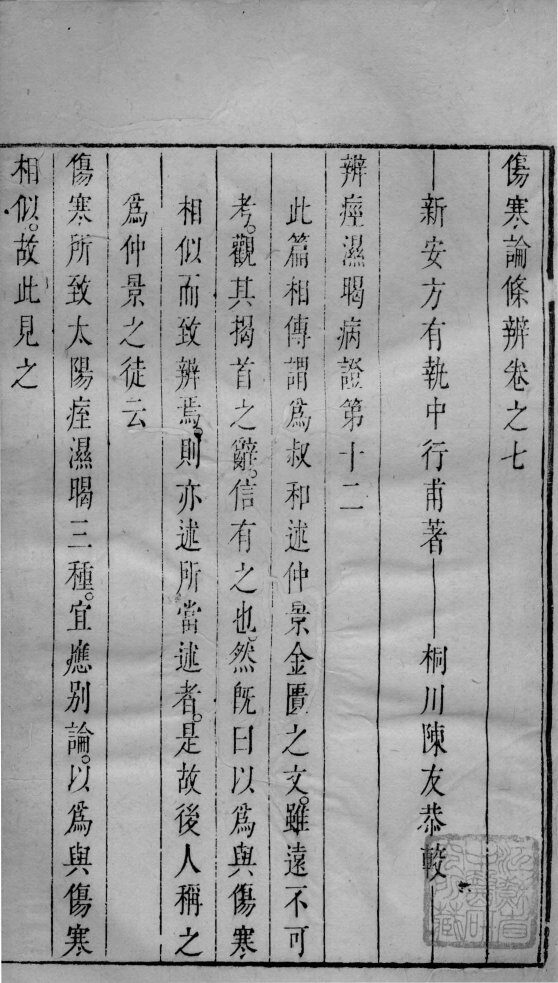 傷寒論條辨卷之七
新安方有執中行甫著 桐川陳友恭較
辨痓濕暍病證第十二
此篇相傳謂爲叔和述仲景金匱之文。雖遠不可
考。觀其揭首之辭。信有之也。然旣曰以爲與傷寒
相似而致辨焉。則亦述所當述者。是故後人稱之
爲仲景之徒云
傷寒所致太陽痓濕暍三種。宜應別論。以爲與傷寒
相似。故此見之